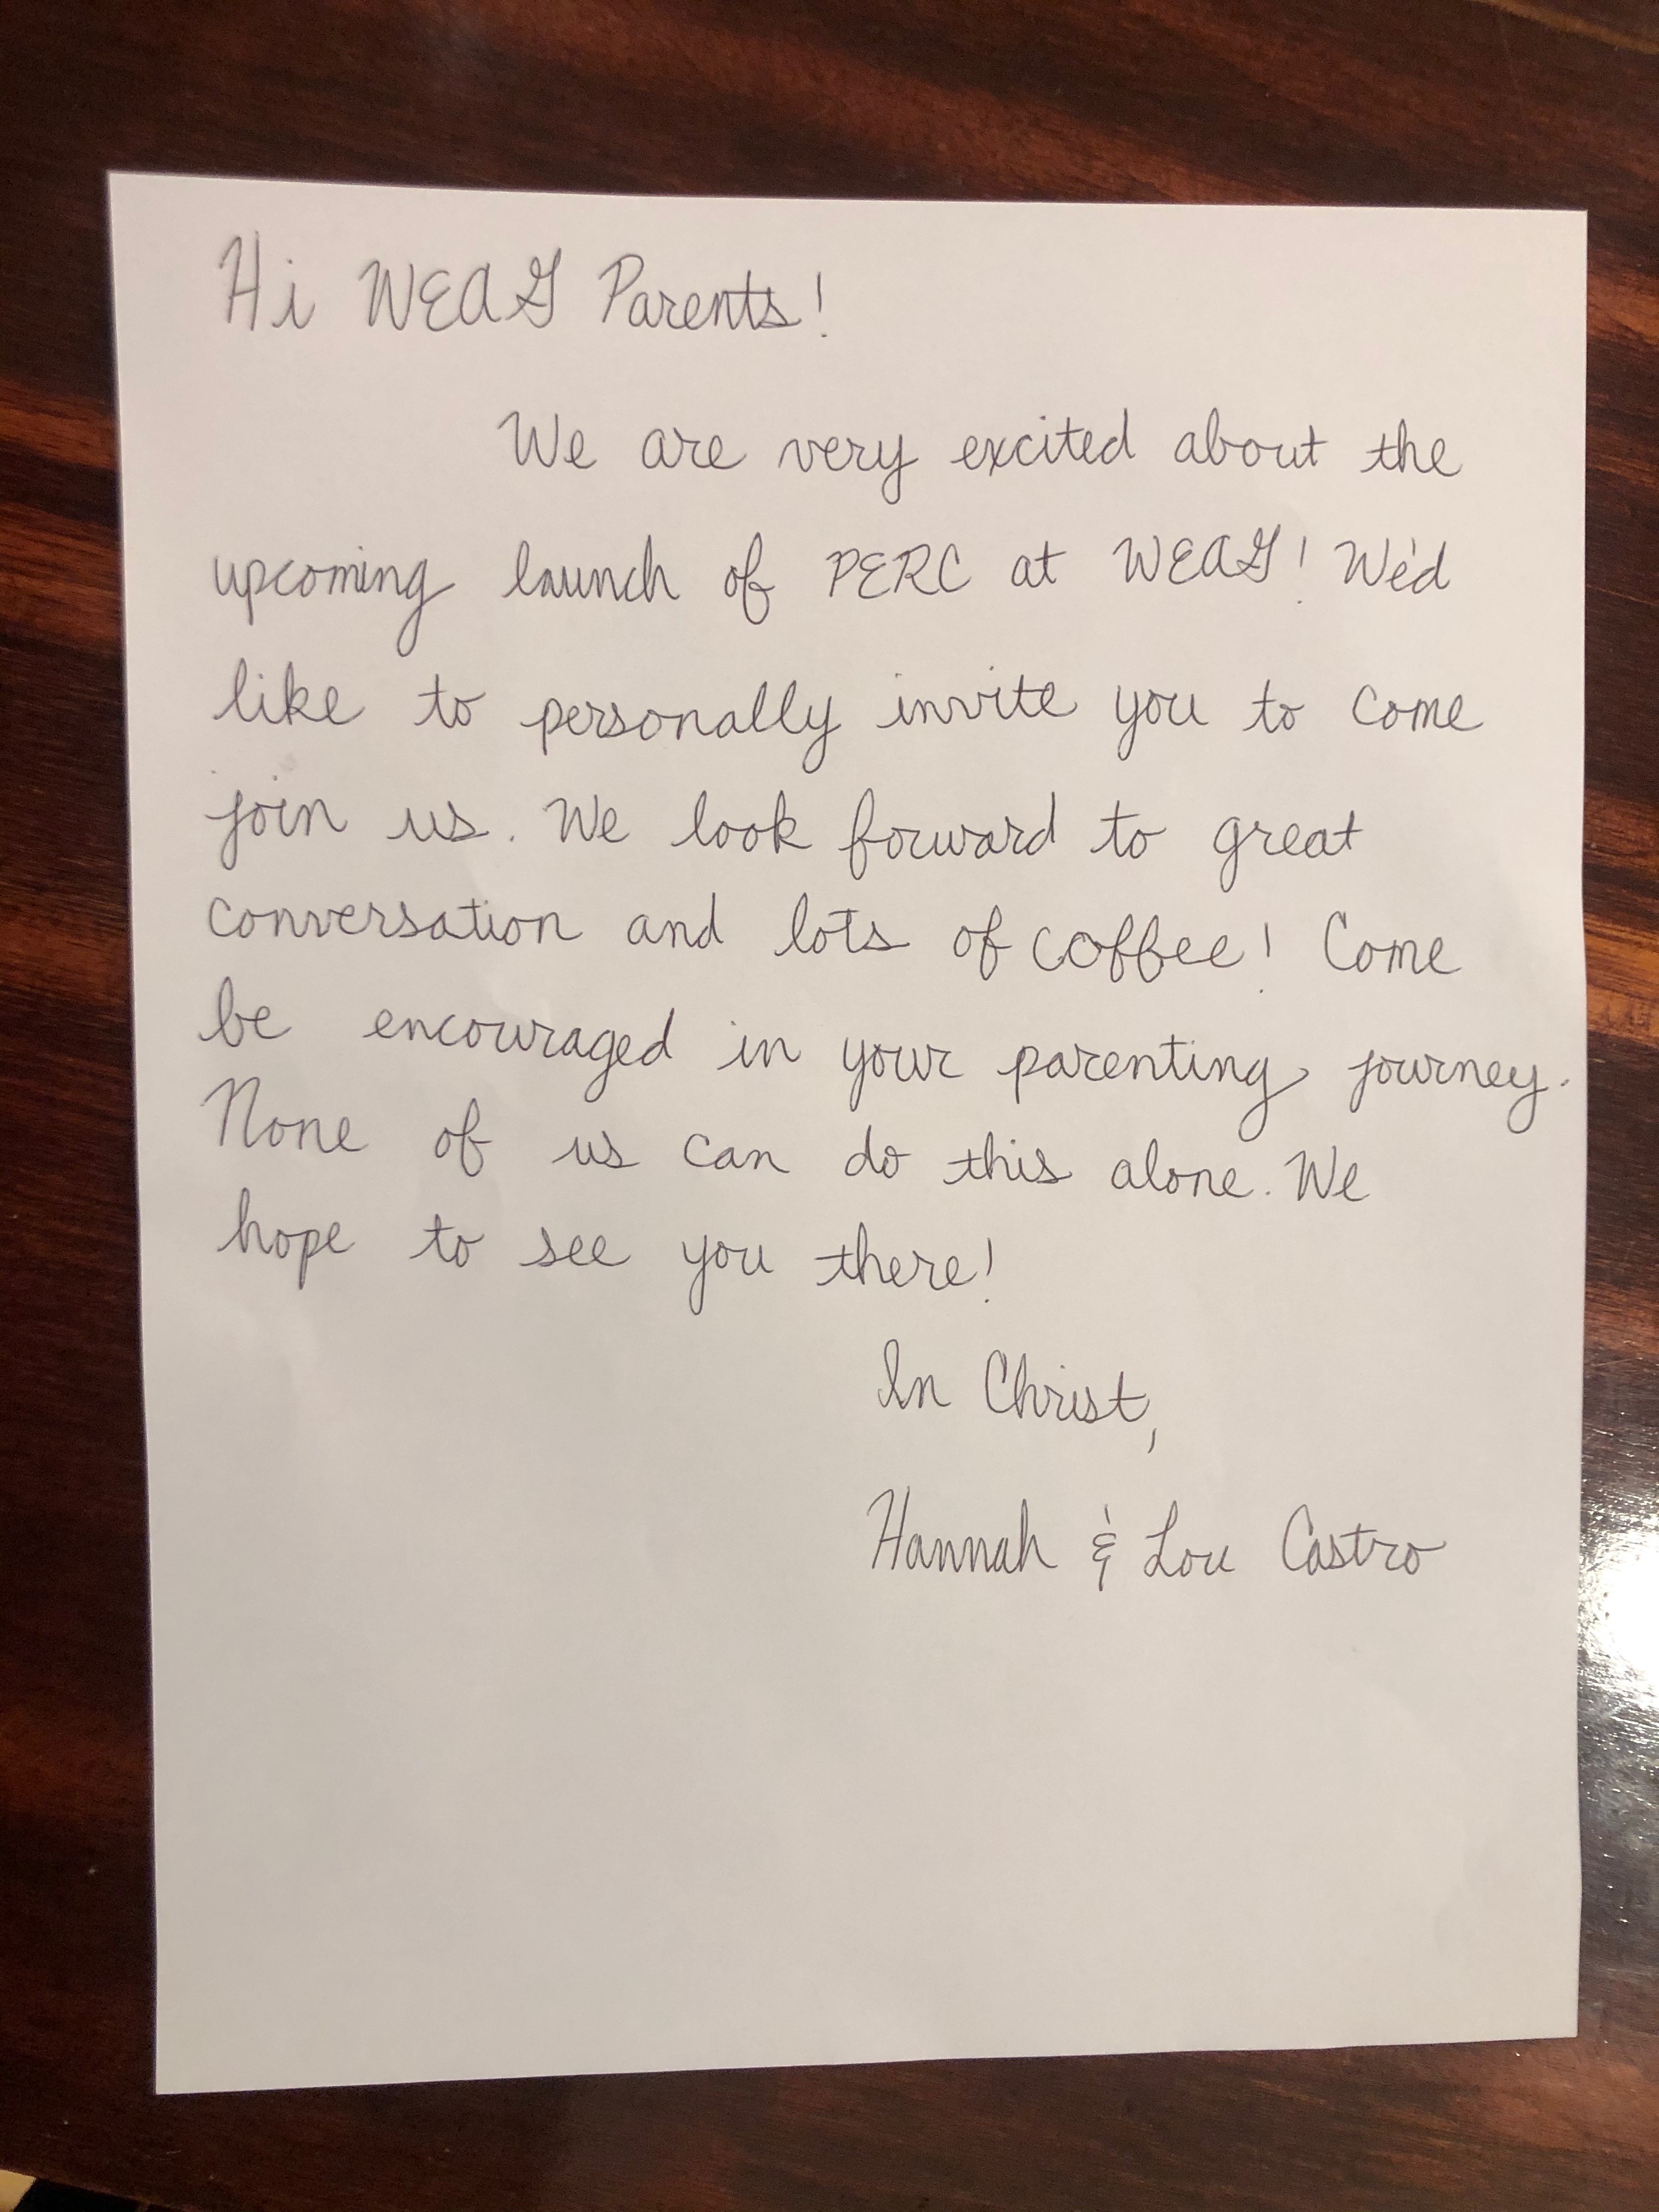 Hi WEAG Parents!
We are very excited about the
upcoming launch of PERC at WEAG! We'd
like to personally invite you to come
join us. We look forward to great
conversation and lots of coffee! Come
be encouraged in your parenting journey.
None of us can do this alone. We
hope to see you there!
In Christ,
Hannah & Lou Castro